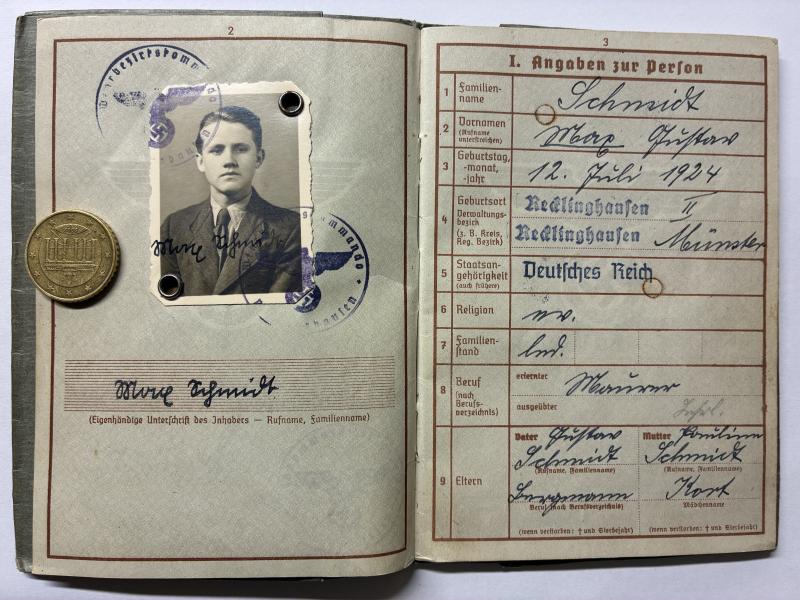 2
Wehrbezirkskommando
Max Schmidt
Max Schmidt
(Eigenhändige Unterschrift des Inhabers — Rufname, Familienname)
3
I. Angaben zur Person
1 Familienname Schmidt
2 Vornamen (Rufname unterstreichen) Max Gustav
3 Geburtstag, -monat, -jahr 12. Juli 1924
4 Geburtsort Recklinghausen II
Verwaltungsbezirk (z. B. Kreis, Reg. Bezirk) Recklinghausen Münster
5 Staatsangehörigkeit (auch frühere) Deutsches Reich
6 Religion ev.
7 Familienstand led.
8 Beruf (nach Berufsverzeichnis) erlernter Maurer
ausgeübter
9 Eltern
Vater Gustav Schmidt
(Rufname, Familienname)
Bergmann
Beruf (nach Berufsverzeichnis)
(wenn verstorben: † und Sterbejahr)
Mutter Pauline Schmidt
(Rufname, Familienname)
Kort
Mädchenname
(wenn verstorben: † und Sterbejahr)